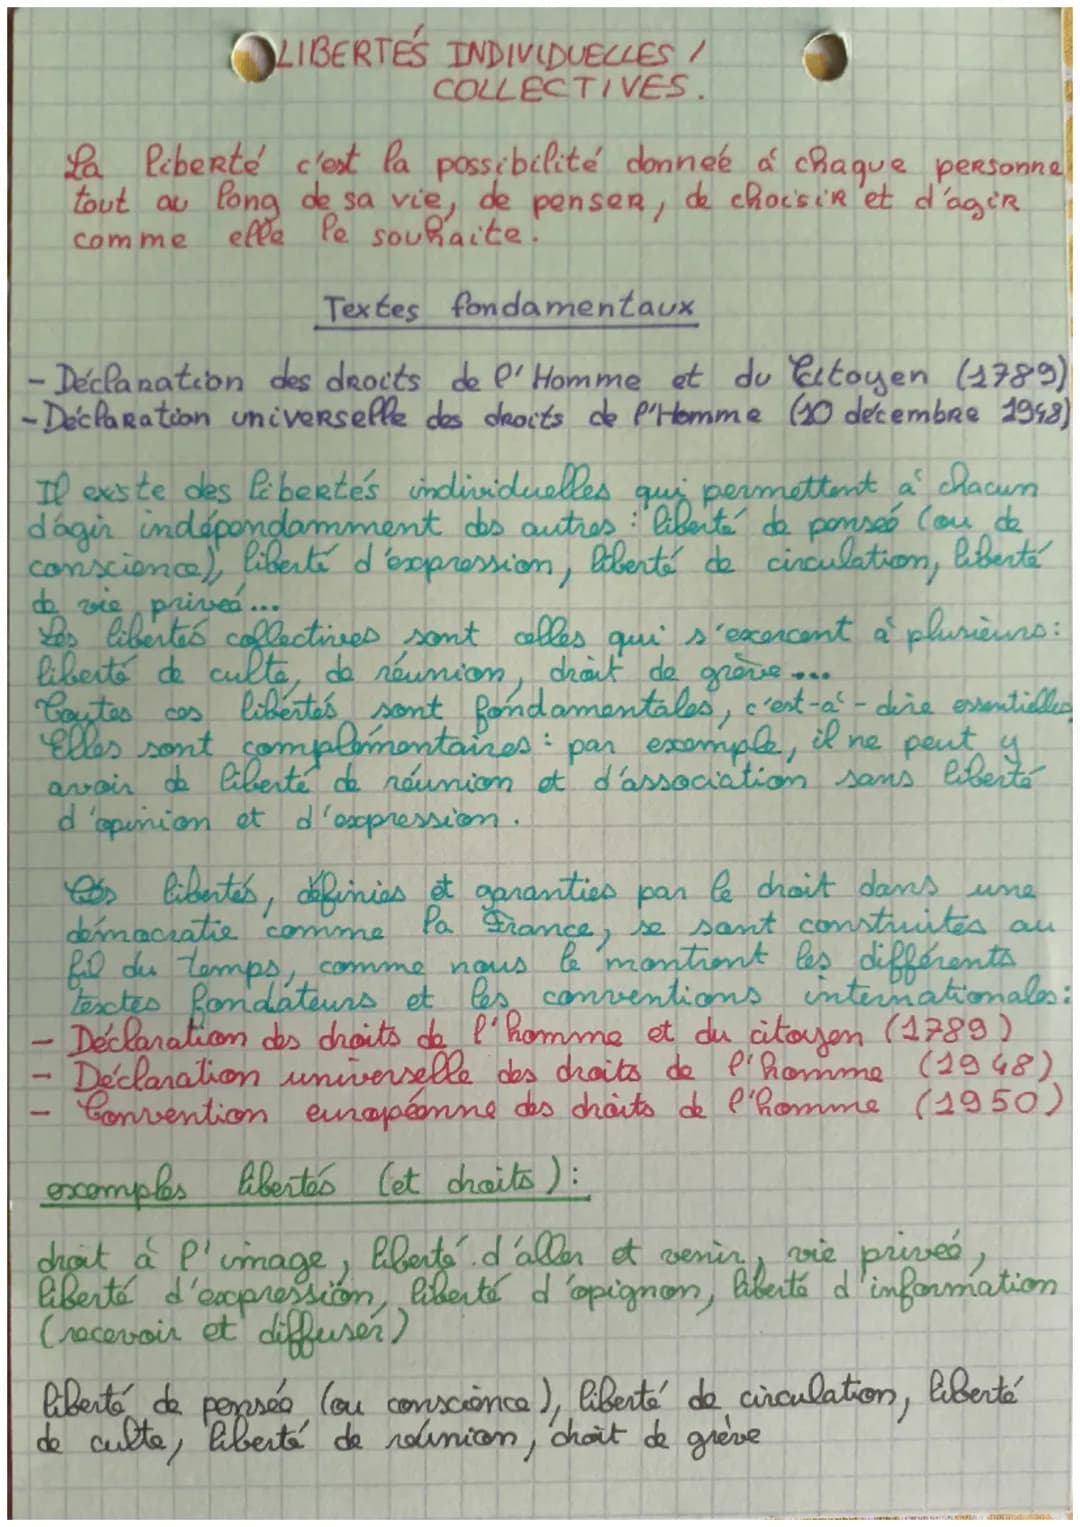 LIBERTÉS INDIVIDUELLES /
COLLECTIVES.
La liberté c'est la possibilité donneé à chaque personne
tout au long de sa vie, de penser, de choisir et d'agir
comme elle le souhaite.
Textes fondamentaux
- Déclaration des droits de l'Homme et du Citoyen (1789)
- Déclaration universelle des droits de l'Homme (10 décembre 1948)
Il existe des libertés individuelles qui permettent à chacun
d'agir indépendamment des autres : liberté de penseé (ou de
conscience), liberté d'expression, liberté de circulation, liberté
de vie priveé...
Les libertés collectives sont celles qui s'exercent à plusieurs :
liberté de culte, de réunion, droit de grève ...
Toutes ces libertés sont fondamentales, c'est-à-dire essentielles
Elles sont complémentaires : par exemple, il ne peut y
avoir de liberté de réunion et d'association sans liberté
d'opinion et d'expression.
Ces libertés, définies et garanties par le droit dans une
démocratie comme la France, se sont construites au
fil du temps, comme nous le montrent les différents
textes fondateurs et les conventions internationales :
- Déclaration des droits de l'homme et du citoyen (1789)
- Déclaration universelle des droits de l'homme (1948)
- Convention européenne des droits de l'homme (1950)
exemples libertés (et droits) :
droit à l'image, liberté d'aller et venir, vie priveé,
liberté d'expression, liberté d'opignon, liberté d'information
(recevoir et diffuser)
liberté de penseé (ou conscience), liberté de circulation, liberté
de culte, liberté de réunion, droit de grève